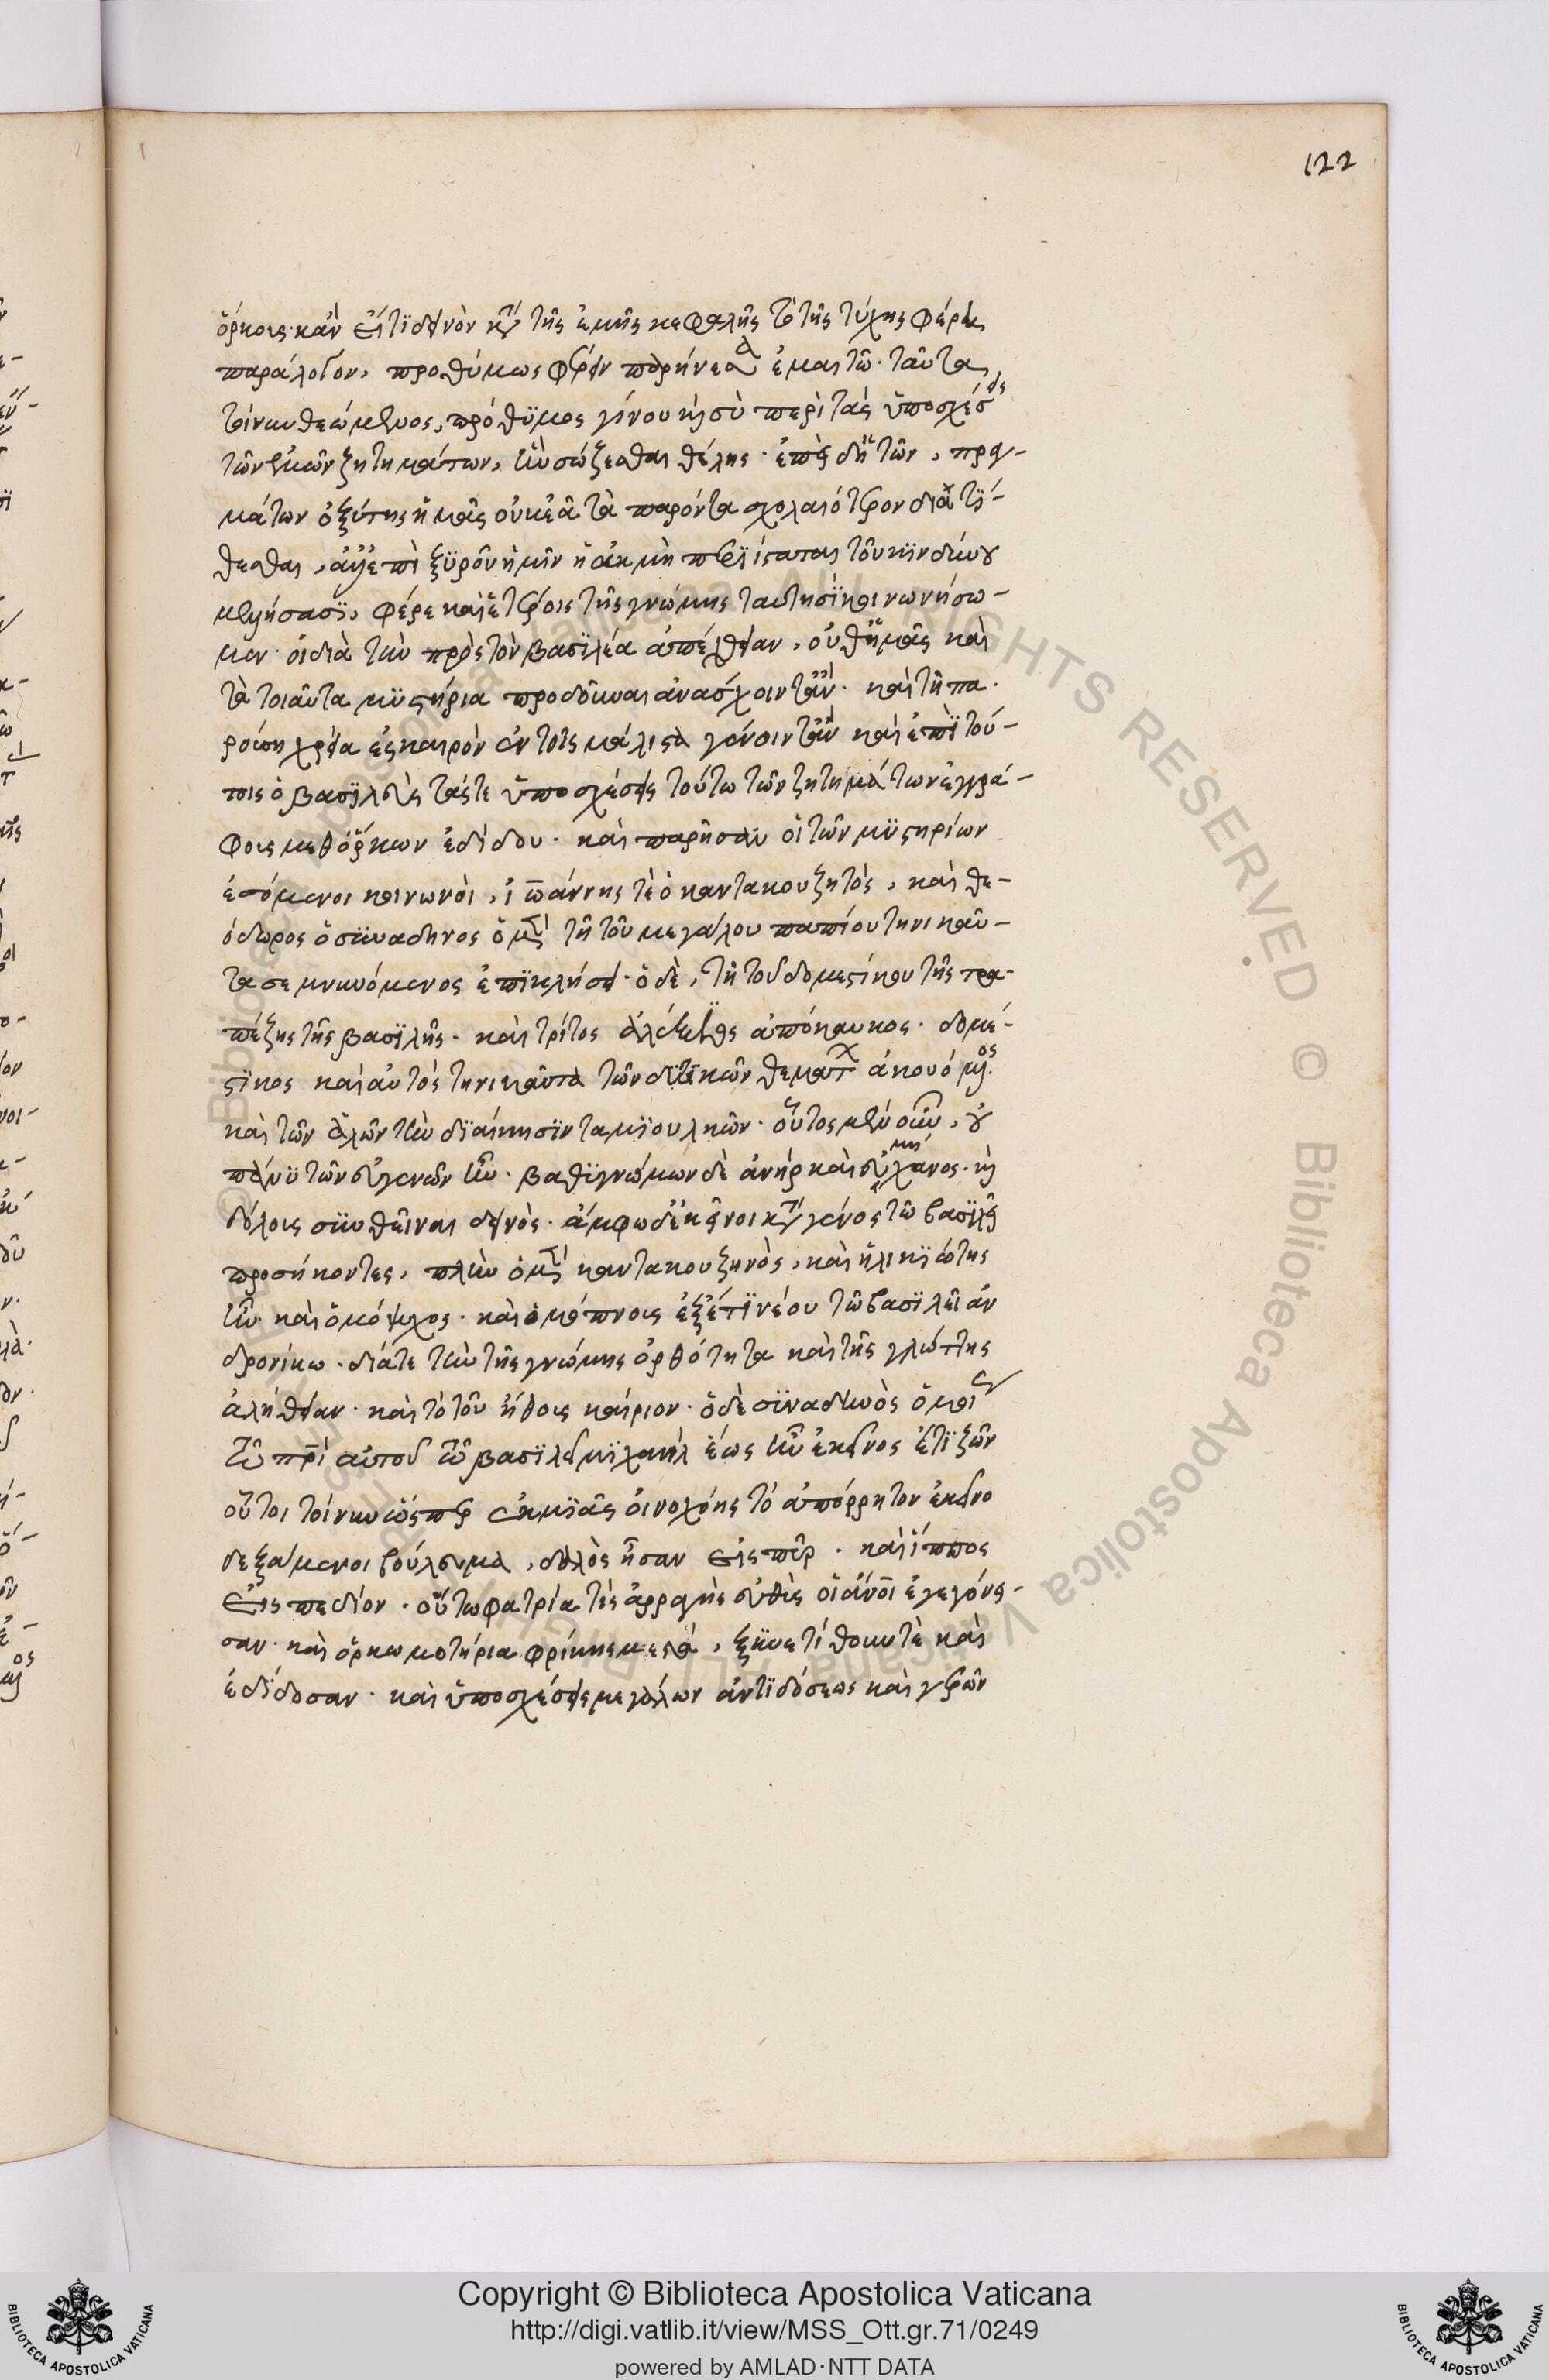 122
ὅρκοις· κἂν εἴ τι δεινὸν κατὰ τῆς ἐμῆς κεφαλῆς τὸ τῆς τύχης φέρει
παράλογον, προθύμως φέρειν παρήνεσα ἐμαυτῶ· ταῦτα
τοίνυν θεώμενος, πρόθυμος γίνου καὶ σὺ περὶ τὰς ὑποσχέσεις
τῶν ἐμῶν ζητημάτων, ἢν σώζεσθαι θέλης· ἐπεὶ δὲ τῶν πραγ-
μάτων ὀξύτης ἡμᾶς οὐκ ἐᾶ τὰ παρόντα σχολαιότερον διατί-
θεσθαι, ἀλλ' ἐπὶ ξυροῦ ἡμῖν ἡ ἀκμὴ περιίσταται τοῦ κινδύνου
μελλήσασι, φέρε καὶ ἑτέροις τῆς γνώμης ταύτησὶ κοινωνήσω-
μεν· οἳ διὰ τὴν πρὸς τὸν βασιλέα ἀπέχθειαν, οὔθ' ἡμᾶς καὶ
τὰ τοιαῦτα μυστήρια προδοῦναι ἀνάσχοιντ' ἄν· καὶ τῆ πα-
ρούση χρεία ἐς καιρὸν ἐν τοῖς μάλιστα γένοιντ' ἄν· καὶ ἐπὶ τού-
τοις ὁ βασιλεὺς τάς τε ὑποσχέσεις τούτω τῶν ζητημάτων ἐγγρά-
φοις μεθ' ὅρκων ἐδίδου· καὶ παρῆσαν οἱ τῶν μυστηρίων
ἐσόμενοι κοινωνοὶ, ἰωάννης τὲ ὁ καντακουζηνὸς, καὶ θε-
όδωρος ὁ συναδηνος ὁ μὲν τῆ τοῦ μεγάλου παπίου τηνικαῦ-
τα σεμνυνόμενος ἐπικλήσει· ὁ δὲ, τῆ τοῦ δομεστίκου τῆς τρα-
πέζης τῆς βασιλικῆς· καὶ τρίτος ἀλέξιος ἀπόκαυκος· δομέ-
στικος καὶ αὐτὸς τηνικαῦτα τῶν δυτικῶν θεμάτων ἀκουόμενος
καὶ τῶν ἁλῶν τὴν διοίκησιν ταμιουλκῶν· οὗτος μὲν οὖν, οὐ
πάνυ τῶν εὐγενῶν ἦν· βαθυγνώμων δὲ ἀνὴρ καὶ εὐμήχανος· καὶ
δόλοις συνθεῖναι δεινὸς· ἄμφω δ' ἐκεῖνοι κατὰ γένος τῶ βασιλεῖ
προσήκοντες, πλὴν ὁ μὲν καντακουζηνὸς, καὶ ἡλικιώτης
ἦν καὶ ὁμόψυχος· καὶ ὁμόπνοις ἐξέτι νέου τῶ βασιλεῖ ἀν
δρονίκω· διά τε τὴν τῆς γνώμης ὀρθότητα καὶ τῆς γλώττης
ἀλήθειαν· καὶ τὸ τοῦ ἤθους καίριον· ὁ δὲ συναδηνὸς ὁμοίως
τῶ πατρὶ αὐτοῦ τῶ βασιλεῖ μιχαὴλ ἕως ἦν ἐκεῖνος ἔτι ζῶν
οὗτοι τοίνυν ὥσπερ ἐκ μιᾶς οἰνοχόης τὸ ἀπόρρητον ἐκεῖνο
δεξάμενοι βούλευμα, δαλὸς ἦσαν εἰς πῦρ· καὶ ἵππος
εἰς πεδίον· οὕτω φατρία τίς ἀρραγὴς εὐθὺς οἱ ἄνθρωποι ἐγεγόνει-
σαν· καὶ ὁρκωμοτήρια φρίκης μεστὰ, ξυνετίθουν τὲ καὶ
ἐδίδοσαν· καὶ ὑποσχέσεις μεγάλων ἀντιδόσεως καὶ γερῶν
Copyright © Biblioteca Apostolica Vaticana
http://digi.vatlib.it/view/MSS_Ott.gr.71/0249
powered by AMLAD·NTT DATA